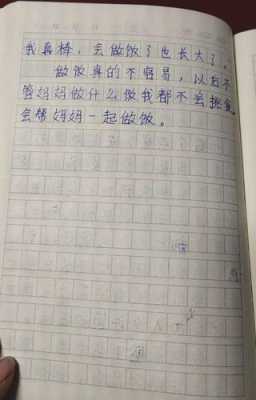 我真棒，会做饭了也长大了。
做饭真的不容易，以后不
管妈妈做什么饭我都不会挑食
会帮妈妈一起做饭。